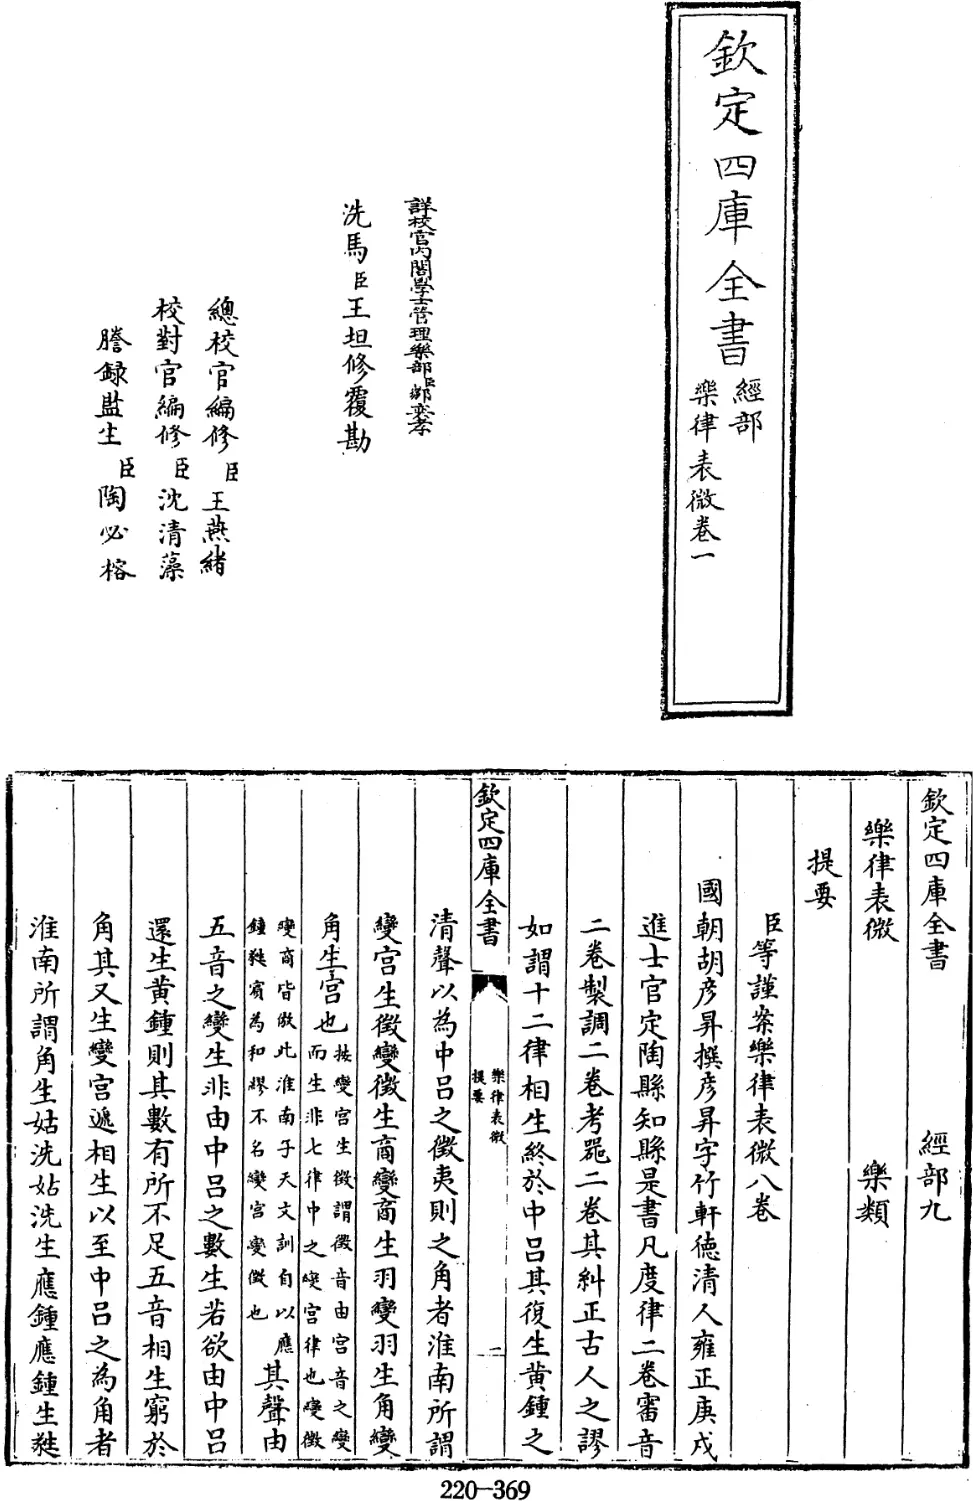 欽定四庫全書
經部
樂律表微卷一
詳校官內閣學士管理樂部臣鄒奕孝
洗馬臣王坦修覆勘
總校官編修臣王燕緒
校對官編修臣沈清藻
謄録監生臣陶必榕
欽定四庫全書 經部九
樂律表微 樂類
提要
臣等謹案樂律表微八卷
國朝胡彦昇撰彦昇字竹軒德清人雍正庚戌
進士官定陶縣知縣是書凡度律二卷審音
二卷製調二卷考噐二卷其糾正古人之謬
如謂十二律相生終於中吕其復生黄鍾之
欽定四庫全書
樂律表微
提要
二
清聲以為中吕之徵夷則之角者淮南所謂
變宫生徵變徵生商變商生羽變羽生角變
角生宫也
按變宫生徵謂徵音由宫音之變
而生非七律中之變宫律也變徵
變商皆倣此淮南子天文訓自以應
鍾蕤賓為和繆不名變宫變徵也
其聲由
五音之變生非由中吕之數生若欲由中吕
還生黄鍾則其數有所不足五音相生窮於
角其又生變宫遞相生以至中吕之為角者
淮南所謂角生姑洗姑洗生應鍾應鍾生蕤
220-369